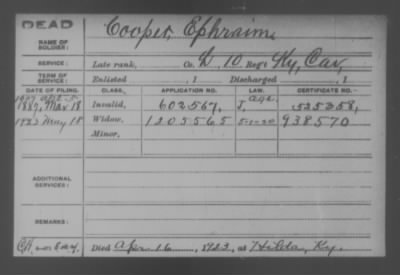 DEAD
NAME OF SOLDIER: Cooper, Ephraim
SERVICE: Late rank, Co. D, 10 Reg't Ky, Cav,
TERM OF SERVICE: Enlisted , 1 Discharged , 1
DATE OF FILING. CLASS. APPLICATION NO. LAW. CERTIFICATE NO.
1887, Mar 18 Invalid, 602567, J, age 525358,
1923 May 18 Widow, 1205565 5-1-20 938570
Minor,
ADDITIONAL SERVICES:
REMARKS:
Died Apr. 16, 1923, at Hilda, Ky.